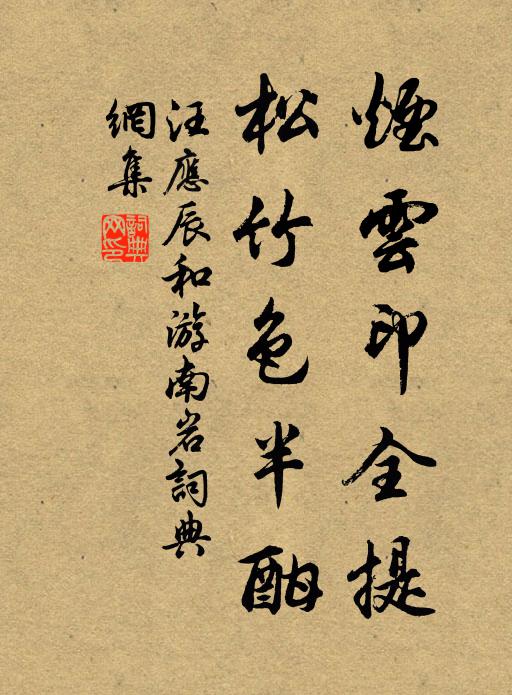 煙雲印全提
松竹色半酣
汪應辰和游南岩詞典
網集
詞典
网印